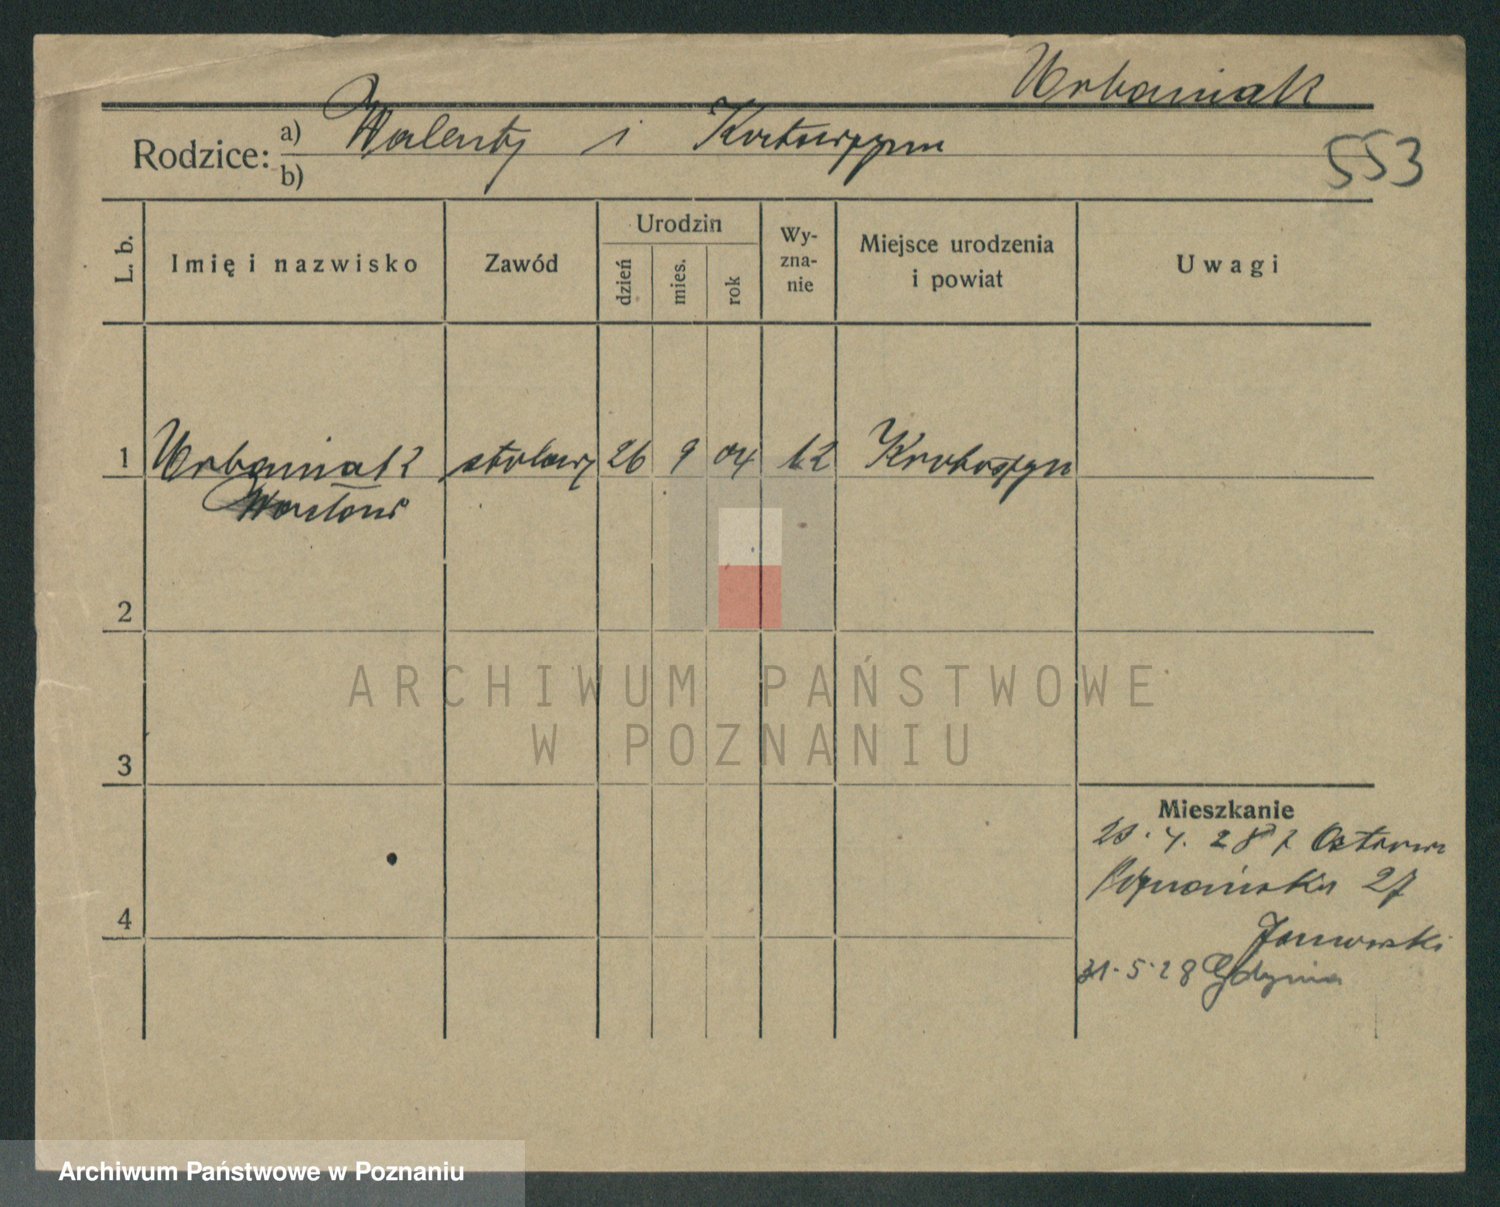 Urbaniak
Rodzice: a) Walenty i Katarzyna
b)
553
L. b.
Imię i nazwisko
Zawód
Urodzin
dzień
mies.
rok
Wy-
zna-
nie
Miejsce urodzenia
i powiat
Uwagi
1 Urbaniak stolarz 26 9 04 Krotoszyn
2
3
4
Mieszkanie
4. 28 z Ostrowa
Poznańska 27
31.5.28 Gdynia
ARCHIWUM PAŃSTWOWE
W POZNANIU
Archiwum Państwowe w Poznaniu